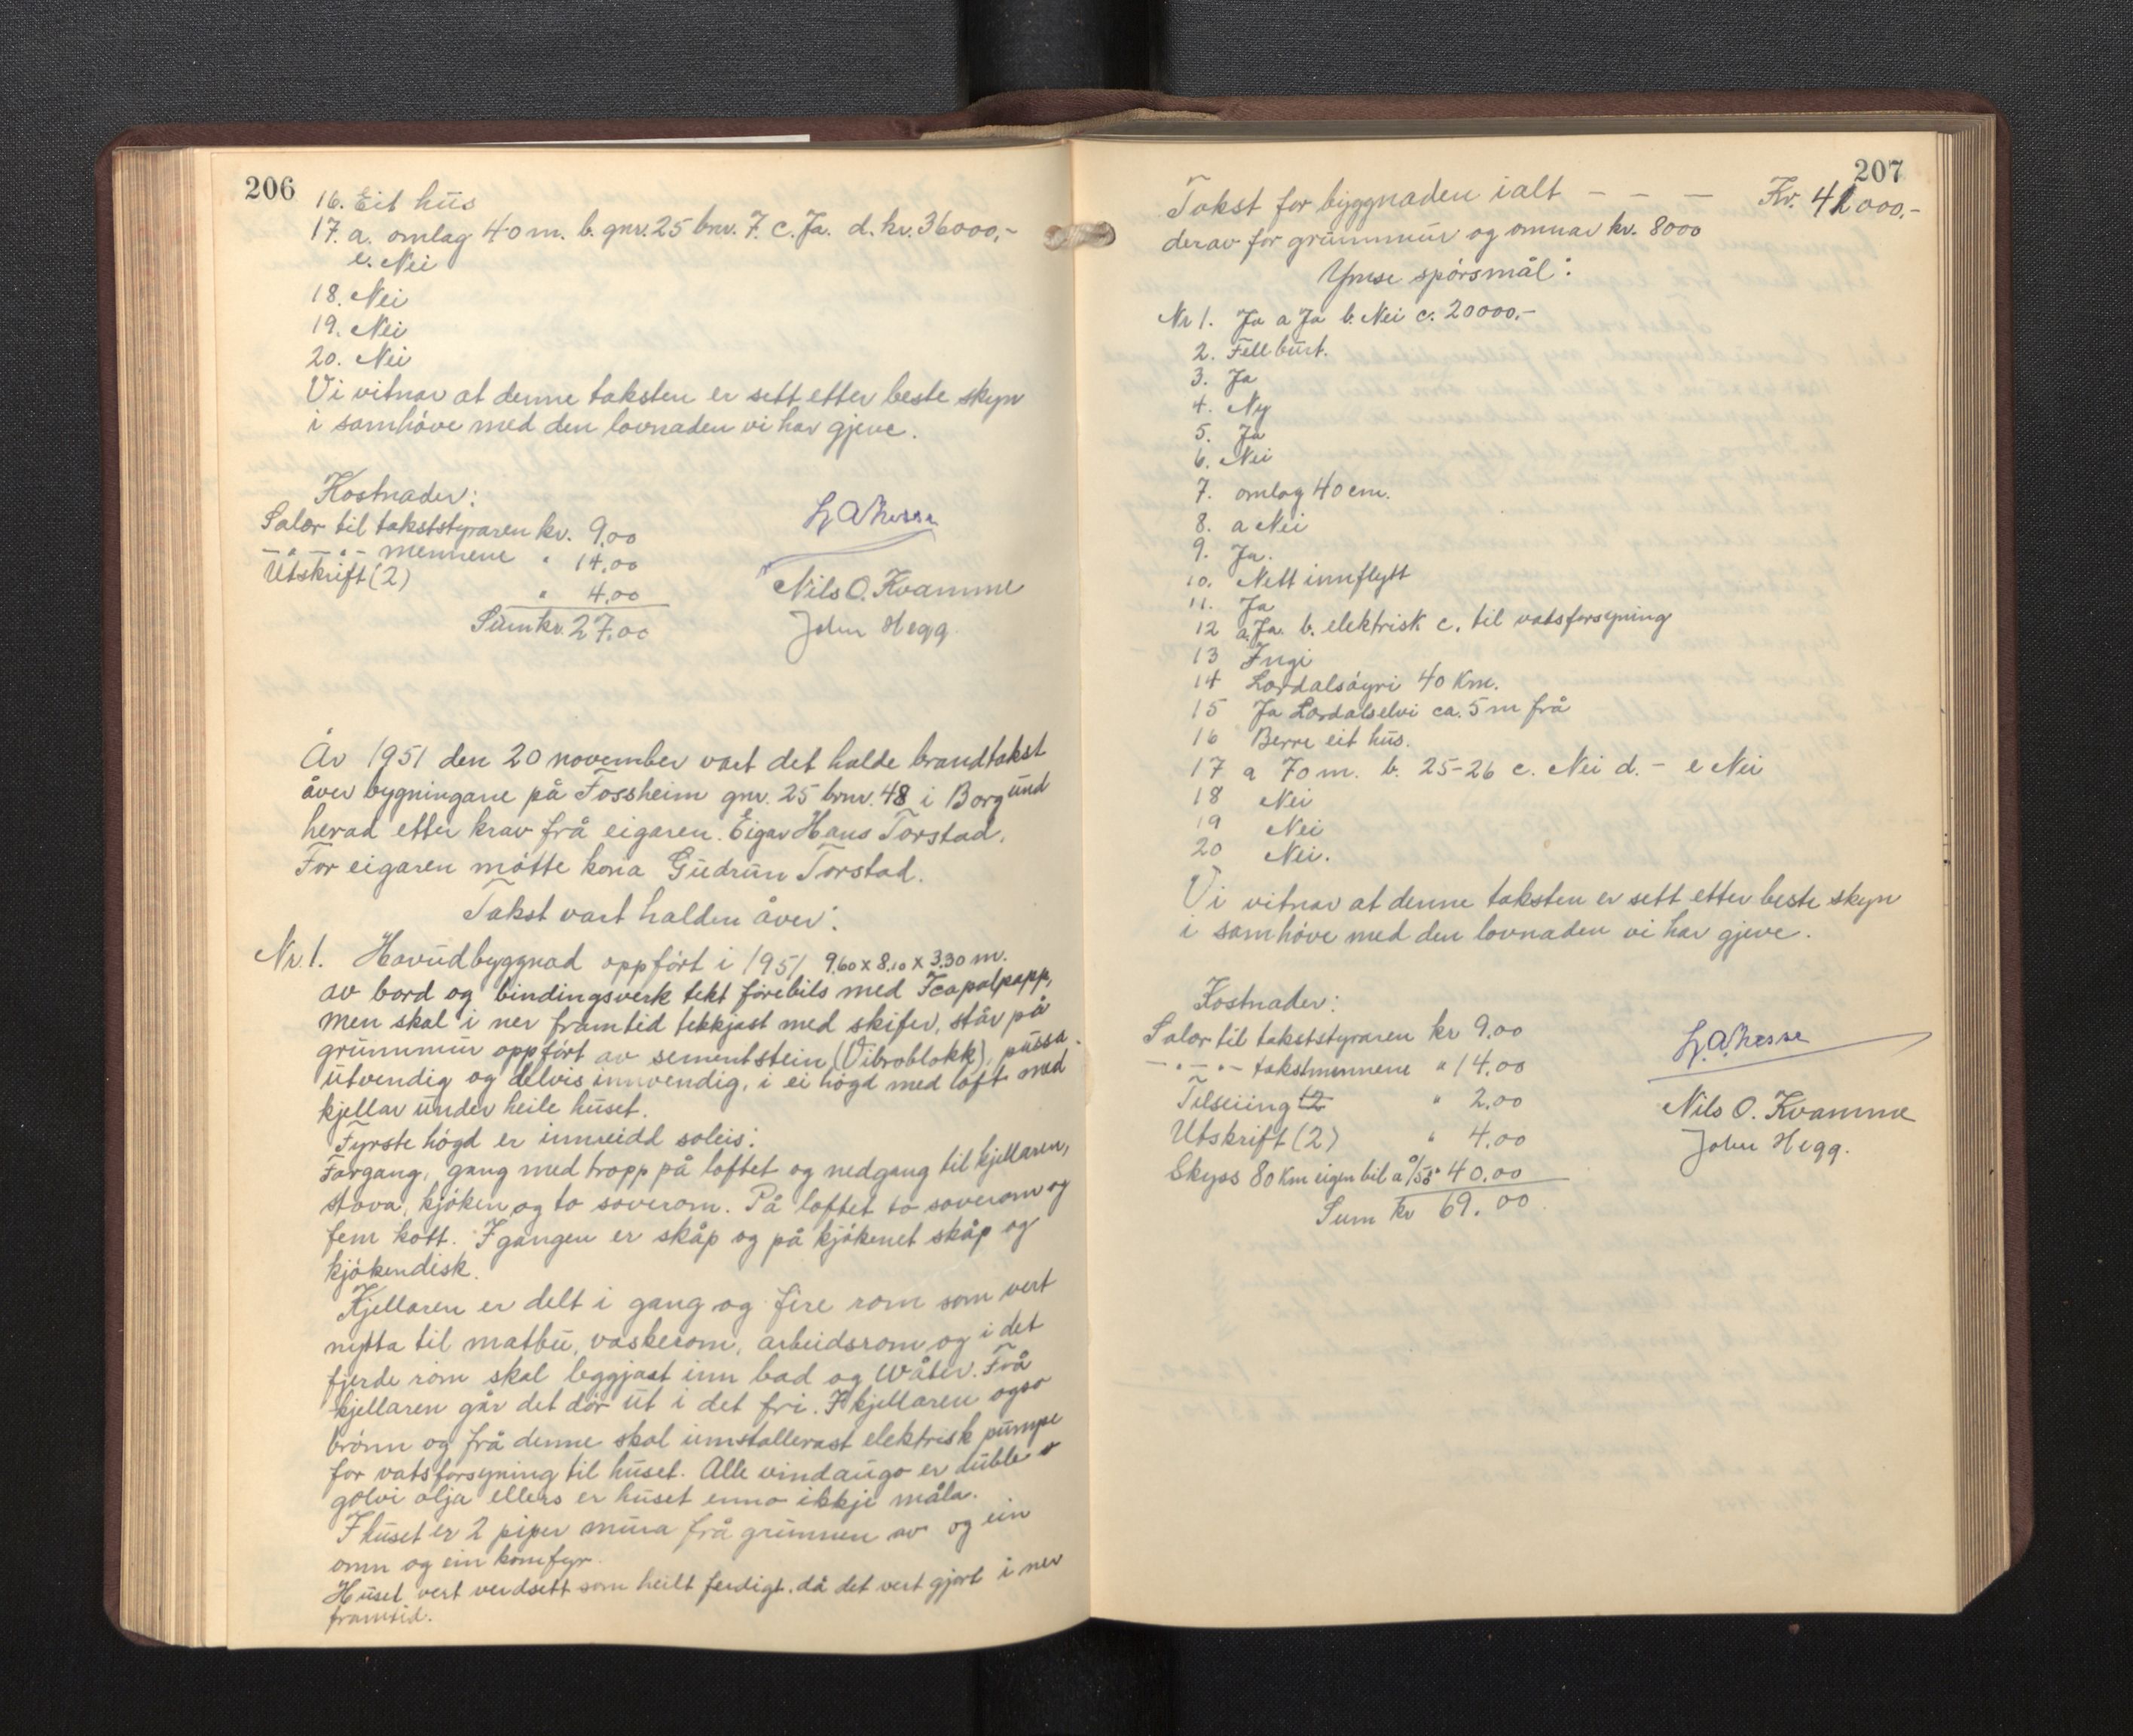 206
16. Eit hus
17. a. omlag 40 m. b. gnr. 25 bnr. 7. c. Ja. d. kr. 36000,-
e. Nei
18. Nei
19. Nei
20. Nei
Vi vitnar at denne taksten er sett etter beste skyn
i samhöve med den lovnaden vi har gjeve.
Kostnader:
Salær til takststyraren kr. 9,00
- " - " - mennene " 14,00
Utskrift (2) " 4,00
Sum kr. 27,00
Nils O. Kvamme
John Hegg.
År 1951 den 20 november vart det halde brandtakst
åver bygningane på Fossheim gnr. 25 bnr. 48 i Borgund
herad etter krav frå eigaren. Eigar Hans Torstad.
For eigaren mötte kona Gudrun Torstad.
Takst vart halden åver:
Nr. 1. Havudbyggnad oppfört i 1951 9,60 x 8,10 x 3,30 m.
av bord og bindingsverk tekt förebils med Icopalpapp,
men skal i ner framtid tekkjast med skifer, står på
grunnmur oppfört av sementstein (Vibroblokk), pussa
utvendig og delvis innvendig, i ei högd med loft med
kjellar under heile huset.
Fyrste högd er innreidd soleis:
Forgang, gang med tropp på loftet og nedgang til kjellaren,
stova, kjöken og to soverom. På loftet to soverom og
fem kott. I gangen er skåp og på kjökenet skåp og
kjökendisk.
Kjellaren er delt i gang og fire rom som vert
nytta til matbu, vaskerom, arbeidsrom og i det
fjerde rom skal leggjast inn bad og Wåter. Frå
kjellaren går det dör ut i det fri. I kjellaren ogso
brönn og frå denne skal innstallerast elektrisk pumpe
for vatsforsyning til huset. Alle vindaugo er duble
golvi olja ellers er huset enno ikkje måla.
I huset er 2 piper mura frå grunnen av og ein
omn og ein komfyr.
Huset vert verdsett som heilt ferdigt, då det vert gjort i ner
framtid.
207
Takst for byggnaden ialt - - - Kr. 42000,-
derav for grunnmur og omnar kr. 8000
Ymse spörsmål:
Nr 1. Ja a Ja b. Nei c. 20000,-
2. Fell burt.
3. Ja
4. Ny
5. Ja
6. Nei
7. omlag 40 cm.
8. a Nei
9. Ja.
10. Nett innflytt
11. Ja
12 a. Ja. b. elektrisk c. til vatsforsyning
13 Ingi
14 Lærdalsöyri 40 Km.
15 Ja Lærdalselvi ca. 5 m frå
16 Berre eit hus.
17 a 70 m. b. 25-26 c. Nei d. - e Nei
18 Nei
19 Nei
20 Nei.
Vi vitnar at denne taksten er sett etter beste skyn
i samhöve med den lovnaden vi har gjeve.
Kostnader:
Salær til takststyraren kr 9,00
- " - " - takstmennene " 14,00
Tilseiing " 2,00
Utskrift (2) " 4,00
Skyss 80 Km eigen bil á %50 " 40,00
Sum kr 69.00
Nils O. Kvamme
John Hegg.